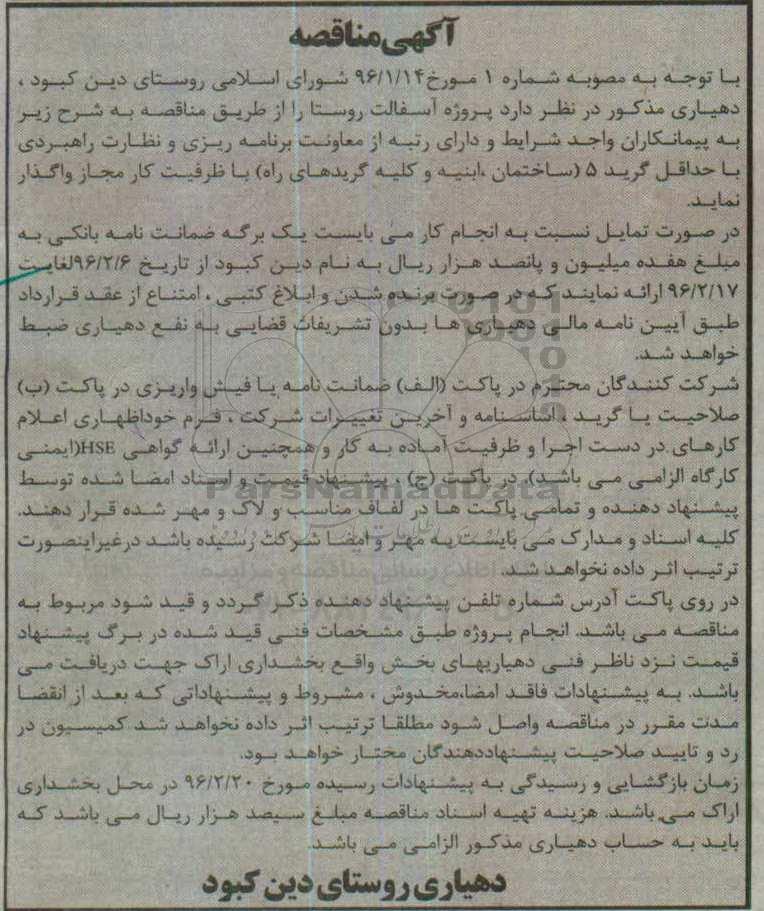 آگهی مناقصه
با توجه به مصوبه شماره ۱ مورخ ۹۶/۱/۱۴ شورای اسلامی روستای دین کبود ،
دهیاری مذکور در نظر دارد پروژه آسفالت روستا را از طریق مناقصه به شرح زیر
به پیمانکاران واجد شرایط و دارای رتبه از معاونت برنامه ریزی و نظارت راهبردی
با حداقل گرید ۵ (ساختمان ،ابنیه و کلیه گریدهای راه) با ظرفیت کار مجاز واگذار
نماید.
در صورت تمایل نسبت به انجام کار می بایست یک برگه ضمانت نامه بانکی به
مبلغ هفده میلیون و پانصد هزار ریال به نام دین کبود از تاریخ ۹۶/۲/۶لغایت
۹۶/۲/۱۷ ارائه نمایند که در صورت برنده شدن و ابلاغ کتبی ، امتناع از عقد قرارداد
طبق آیین نامه مالی دهیاری ها بدون تشریفات قضایی به نفع دهیاری ضبط
خواهد شد.
شرکت کنندگان محترم در پاکت (الف) ضمانت نامه یا فیش واریزی در پاکت (ب)
صلاحیت یا گرید ، اساسنامه و آخرین تغییرات شرکت ، فرم خوداظهاری اعلام
کارهای در دست اجرا و ظرفیت آماده به کار و همچنین ارائه گواهی HSE(ایمنی
کارگاه الزامی می باشد). در پاکت (ج) ، پیشنهاد قیمت و اسناد امضا شده توسط
پیشنهاد دهنده و تمامی پاکت ها در لفاف مناسب و لاک و مهر شده قرار دهند.
کلیه اسناد و مدارک می بایست به مهر و امضا شرکت رسیده باشد درغیراینصورت
ترتیب اثر داده نخواهد شد.
در روی پاکت آدرس شماره تلفن پیشنهاد دهنده ذکر گردد و قید شود مربوط به
مناقصه می باشد. انجام پروژه طبق مشخصات فنی قید شده در برگ پیشنهاد
قیمت نزد ناظر فنی دهیاریهای بخش واقع بخشداری اراک جهت دریافت می
باشد. به پیشنهادات فاقد امضا،مخدوش ، مشروط و پیشنهاداتی که بعد از انقضا
مدت مقرر در مناقصه واصل شود مطلقا ترتیب اثر داده نخواهد شد کمیسیون در
رد و تایید صلاحیت پیشنهاددهندگان مختار خواهد بود.
زمان بازگشایی و رسیدگی به پیشنهادات رسیده مورخ ۹۶/۲/۲۰ در محل بخشداری
اراک می باشد. هزینه تهیه اسناد مناقصه مبلغ سیصد هزار ریال می باشد که
باید به حساب دهیاری مذکور الزامی می باشد.
دهیاری روستای دین کبود
ParsNamadData